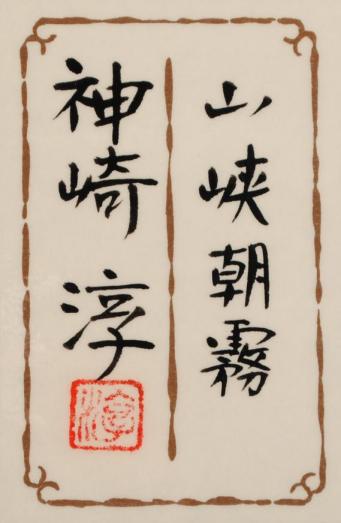 山峡朝霧
神崎淳
淳